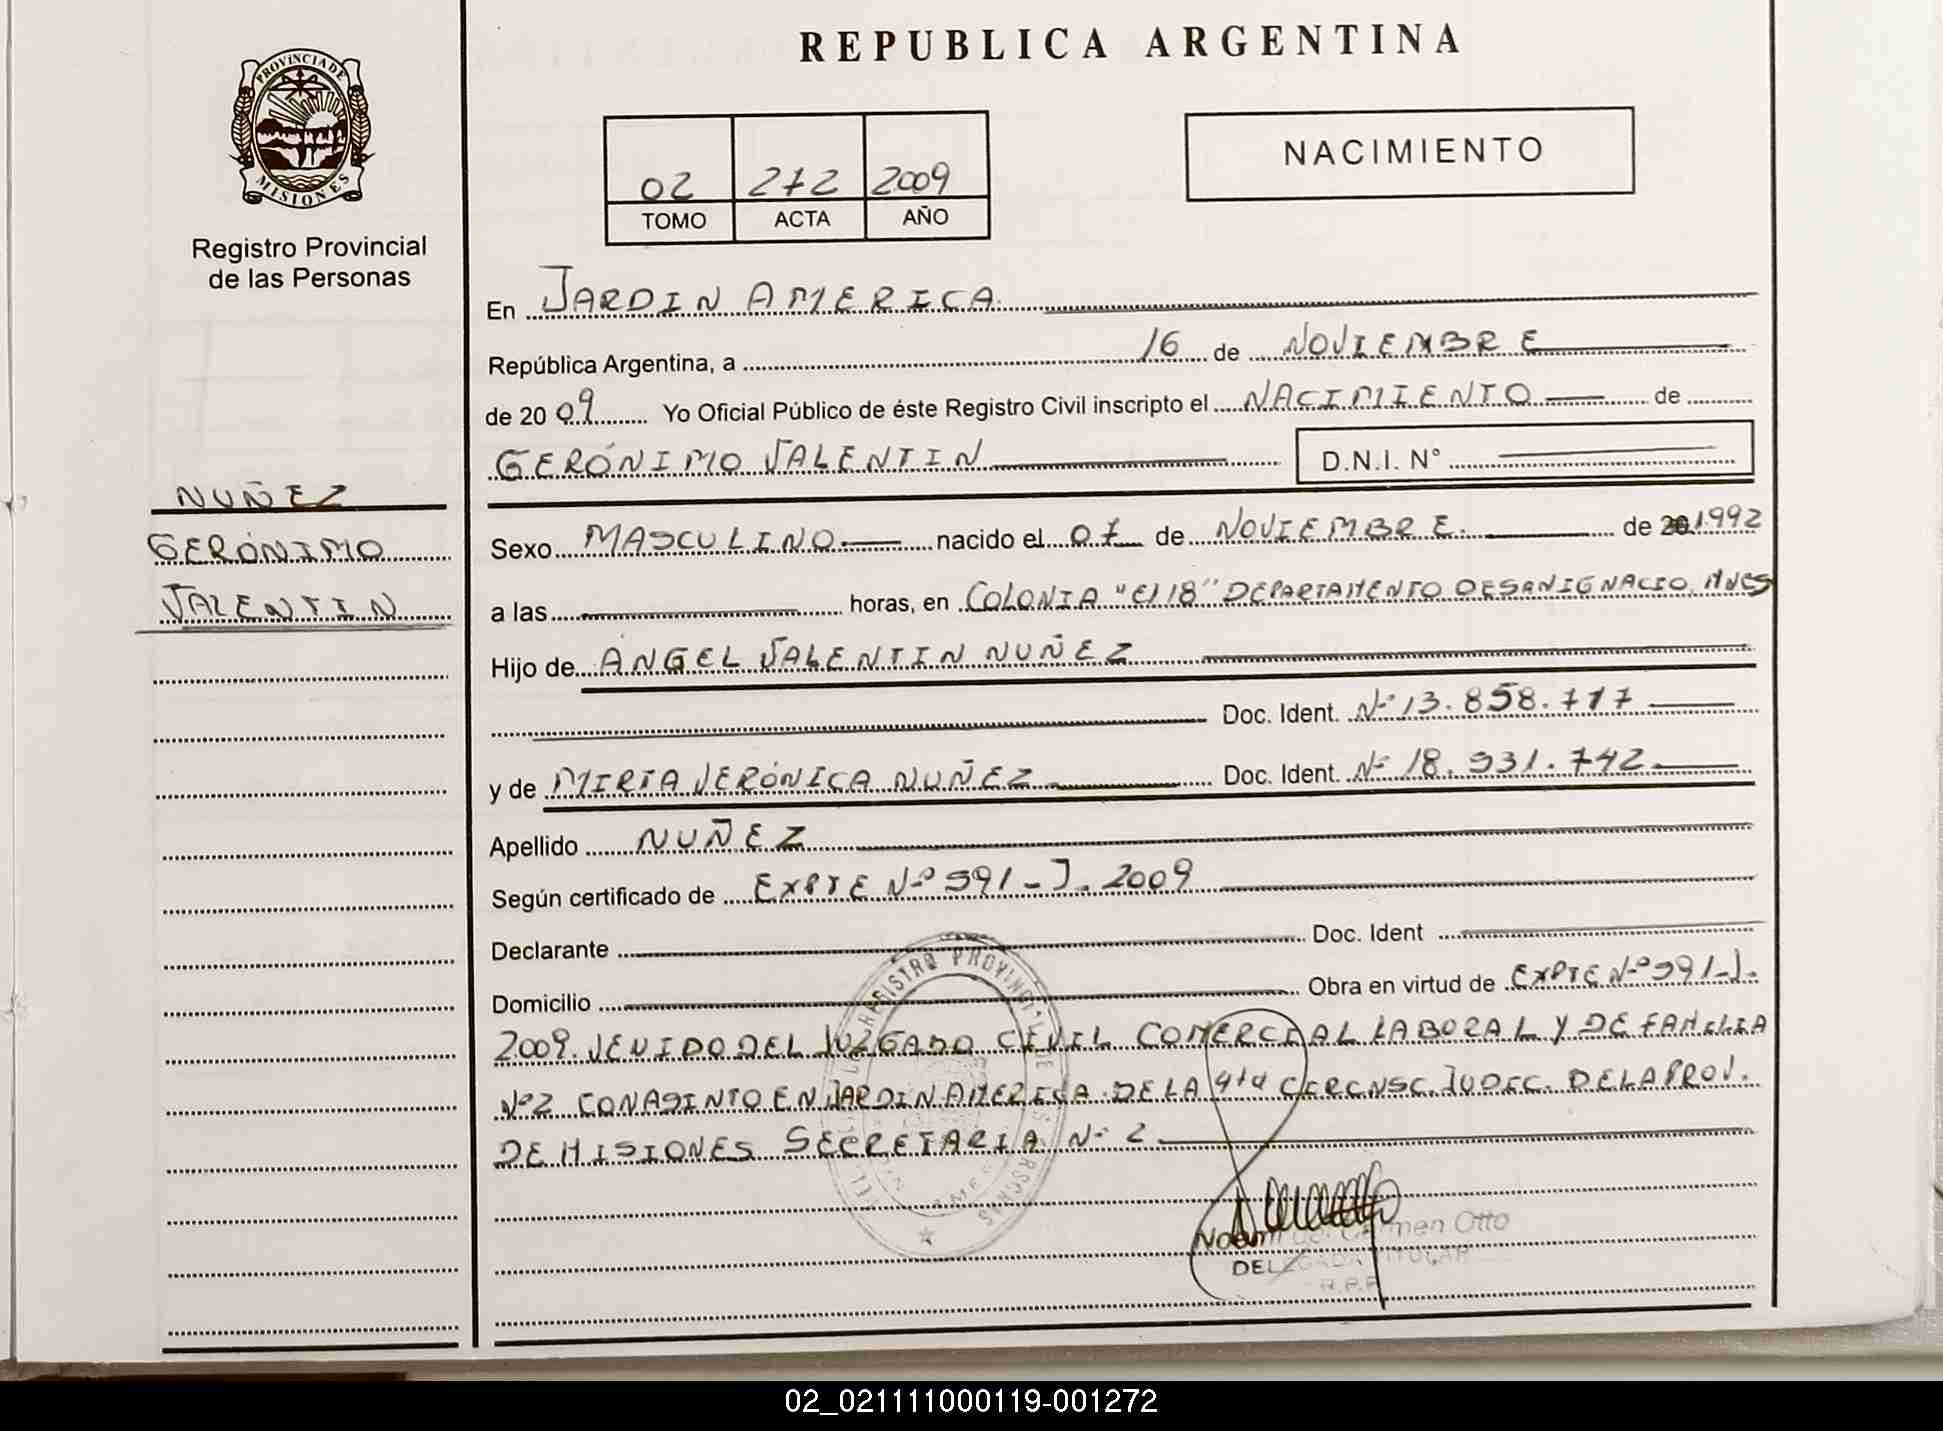 REPUBLICA ARGENTINA
PROVINCIA DE
MISIONES
Registro Provincial
de las Personas
02 272 2009
TOMO ACTA AÑO
NACIMIENTO
En JARDIN AMERICA
República Argentina, a 16 de NOVIEMBRE
de 2009 Yo Oficial Público de éste Registro Civil inscripto el NACIMIENTO de
GERÓNIMO VALENTIN D.N.I. N°
NUÑEZ
GERÓNIMO
VALENTIN
Sexo MASCULINO nacido el 07 de NOVIEMBRE de 1992
a las horas, en COLONIA "El 18" DEPARTAMENTO DE SAN IGNACIO, MNES
Hijo de ANGEL VALENTIN NUÑEZ
Doc. Ident. Nº 13.858.717
y de MIRTA VERÓNICA NUÑEZ Doc. Ident. Nº 18.931.742
Apellido NUÑEZ
Según certificado de EXPTE Nº 991-J-2009
Declarante Doc. Ident
Domicilio Obra en virtud de EXPTE Nº 991-J-
2009. VENIDO DEL JUZGADO CIVIL COMERCIAL LABORAL Y DE FAMILIA
Nº2 CON ASINTO EN JARDIN AMERICA DE LA 4ta CIRCNSC. JUDIC. DE LA PROV.
DE MISIONES SECRETARIA Nº 2
REGISTRO PROVINCIAL DE
Noemi del Carmen Otto
DELEGADA TITULAR
R.P.P
02_021111000119-001272